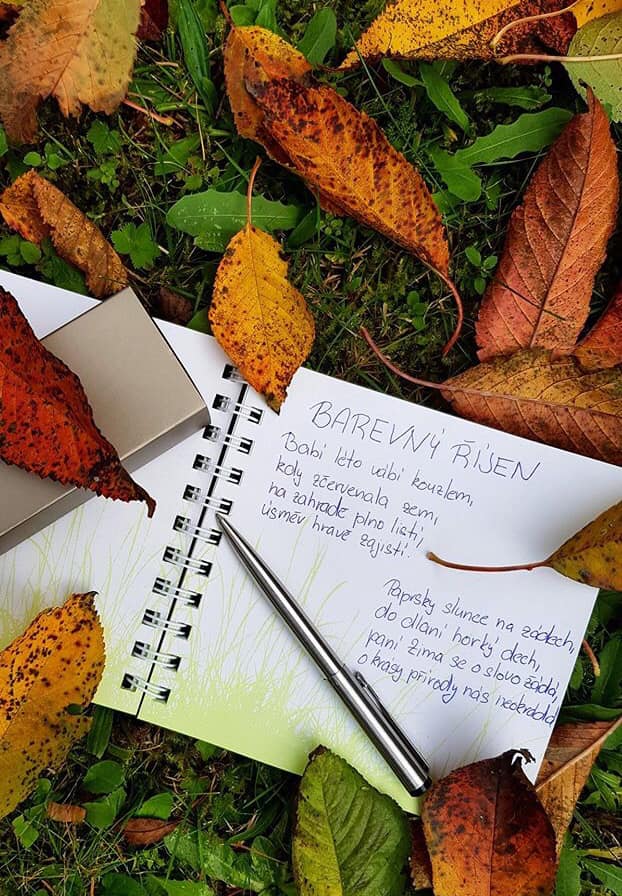 BAREVNÝ ŘÍJEN
Babí léto vábí kouzlem,
koly zčervenala zem,
na zahradě plno listí,
úsměv hravě zajistí.
Paprsky slunce na zádech,
do dlaní horký dech,
paní Zima se o slovo žádá,
o krásy přírody nás neokrádá